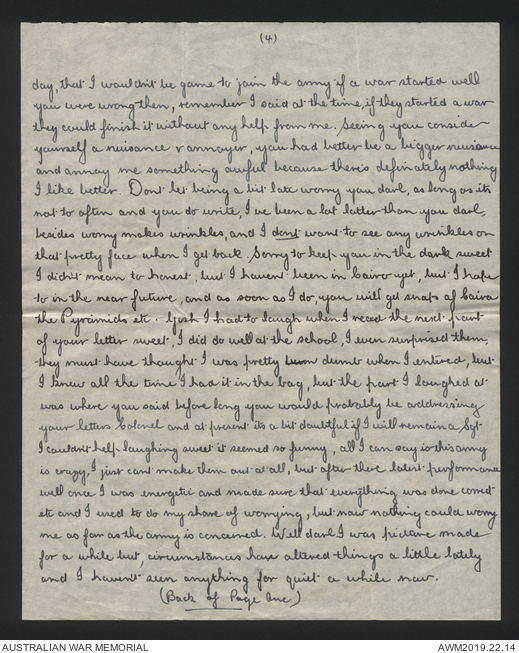 (4)
day, that I wouldn't be game to join the army if a war started well
you were wrong then, remember I said at the time, if they started a war
they could finish it without any help from me. Seeing you consider
yourself a nuisance & annoyer, you had better be a bigger nuisance
and annoy me something awful because there's definately nothing
I like better. Don't let being a bit late worry you darl, as long as its
not to often and you do write, I've been a lot latter than you darl,
besides worry makes wrinkles, and I dont want to see any wrinkles on
that pretty face when I get back. Sorry to keep you in the dark sweet
I didn't mean to honest, but I havent been in Cairo yet, but I hope
to in the near future, and as soon as I do, you will get snaps of Cairo
the Pyramids etc. Gosh I had to laugh when I recd the next part
of your letter sweet, I did do well at the school, I even surprised them,
they must have thought I was pretty dumb when I entered, but
I knew all the time I had it in the bag, but the part I laughed at
was where you said before long you would probably be addressing
your letters Colonel and at present its a bit doubtful if I will remain a Sgt
I couldn't help laughing sweet it seemed so funny, all I can say is this army
is crazy, I just cant make them out at all, but after there latest performance
well once I was energetic and made sure that everything was done correct
etc and I used to do my share of worrying, but now nothing could worry
me as far as the army is concerned. Well darl I was picture made
for a while but, circumstances have altered things a little lately
and I havent seen anything for quiet a while now.
(Back of Page One)
AUSTRALIAN WAR MEMORIAL
AWM2019.22.14